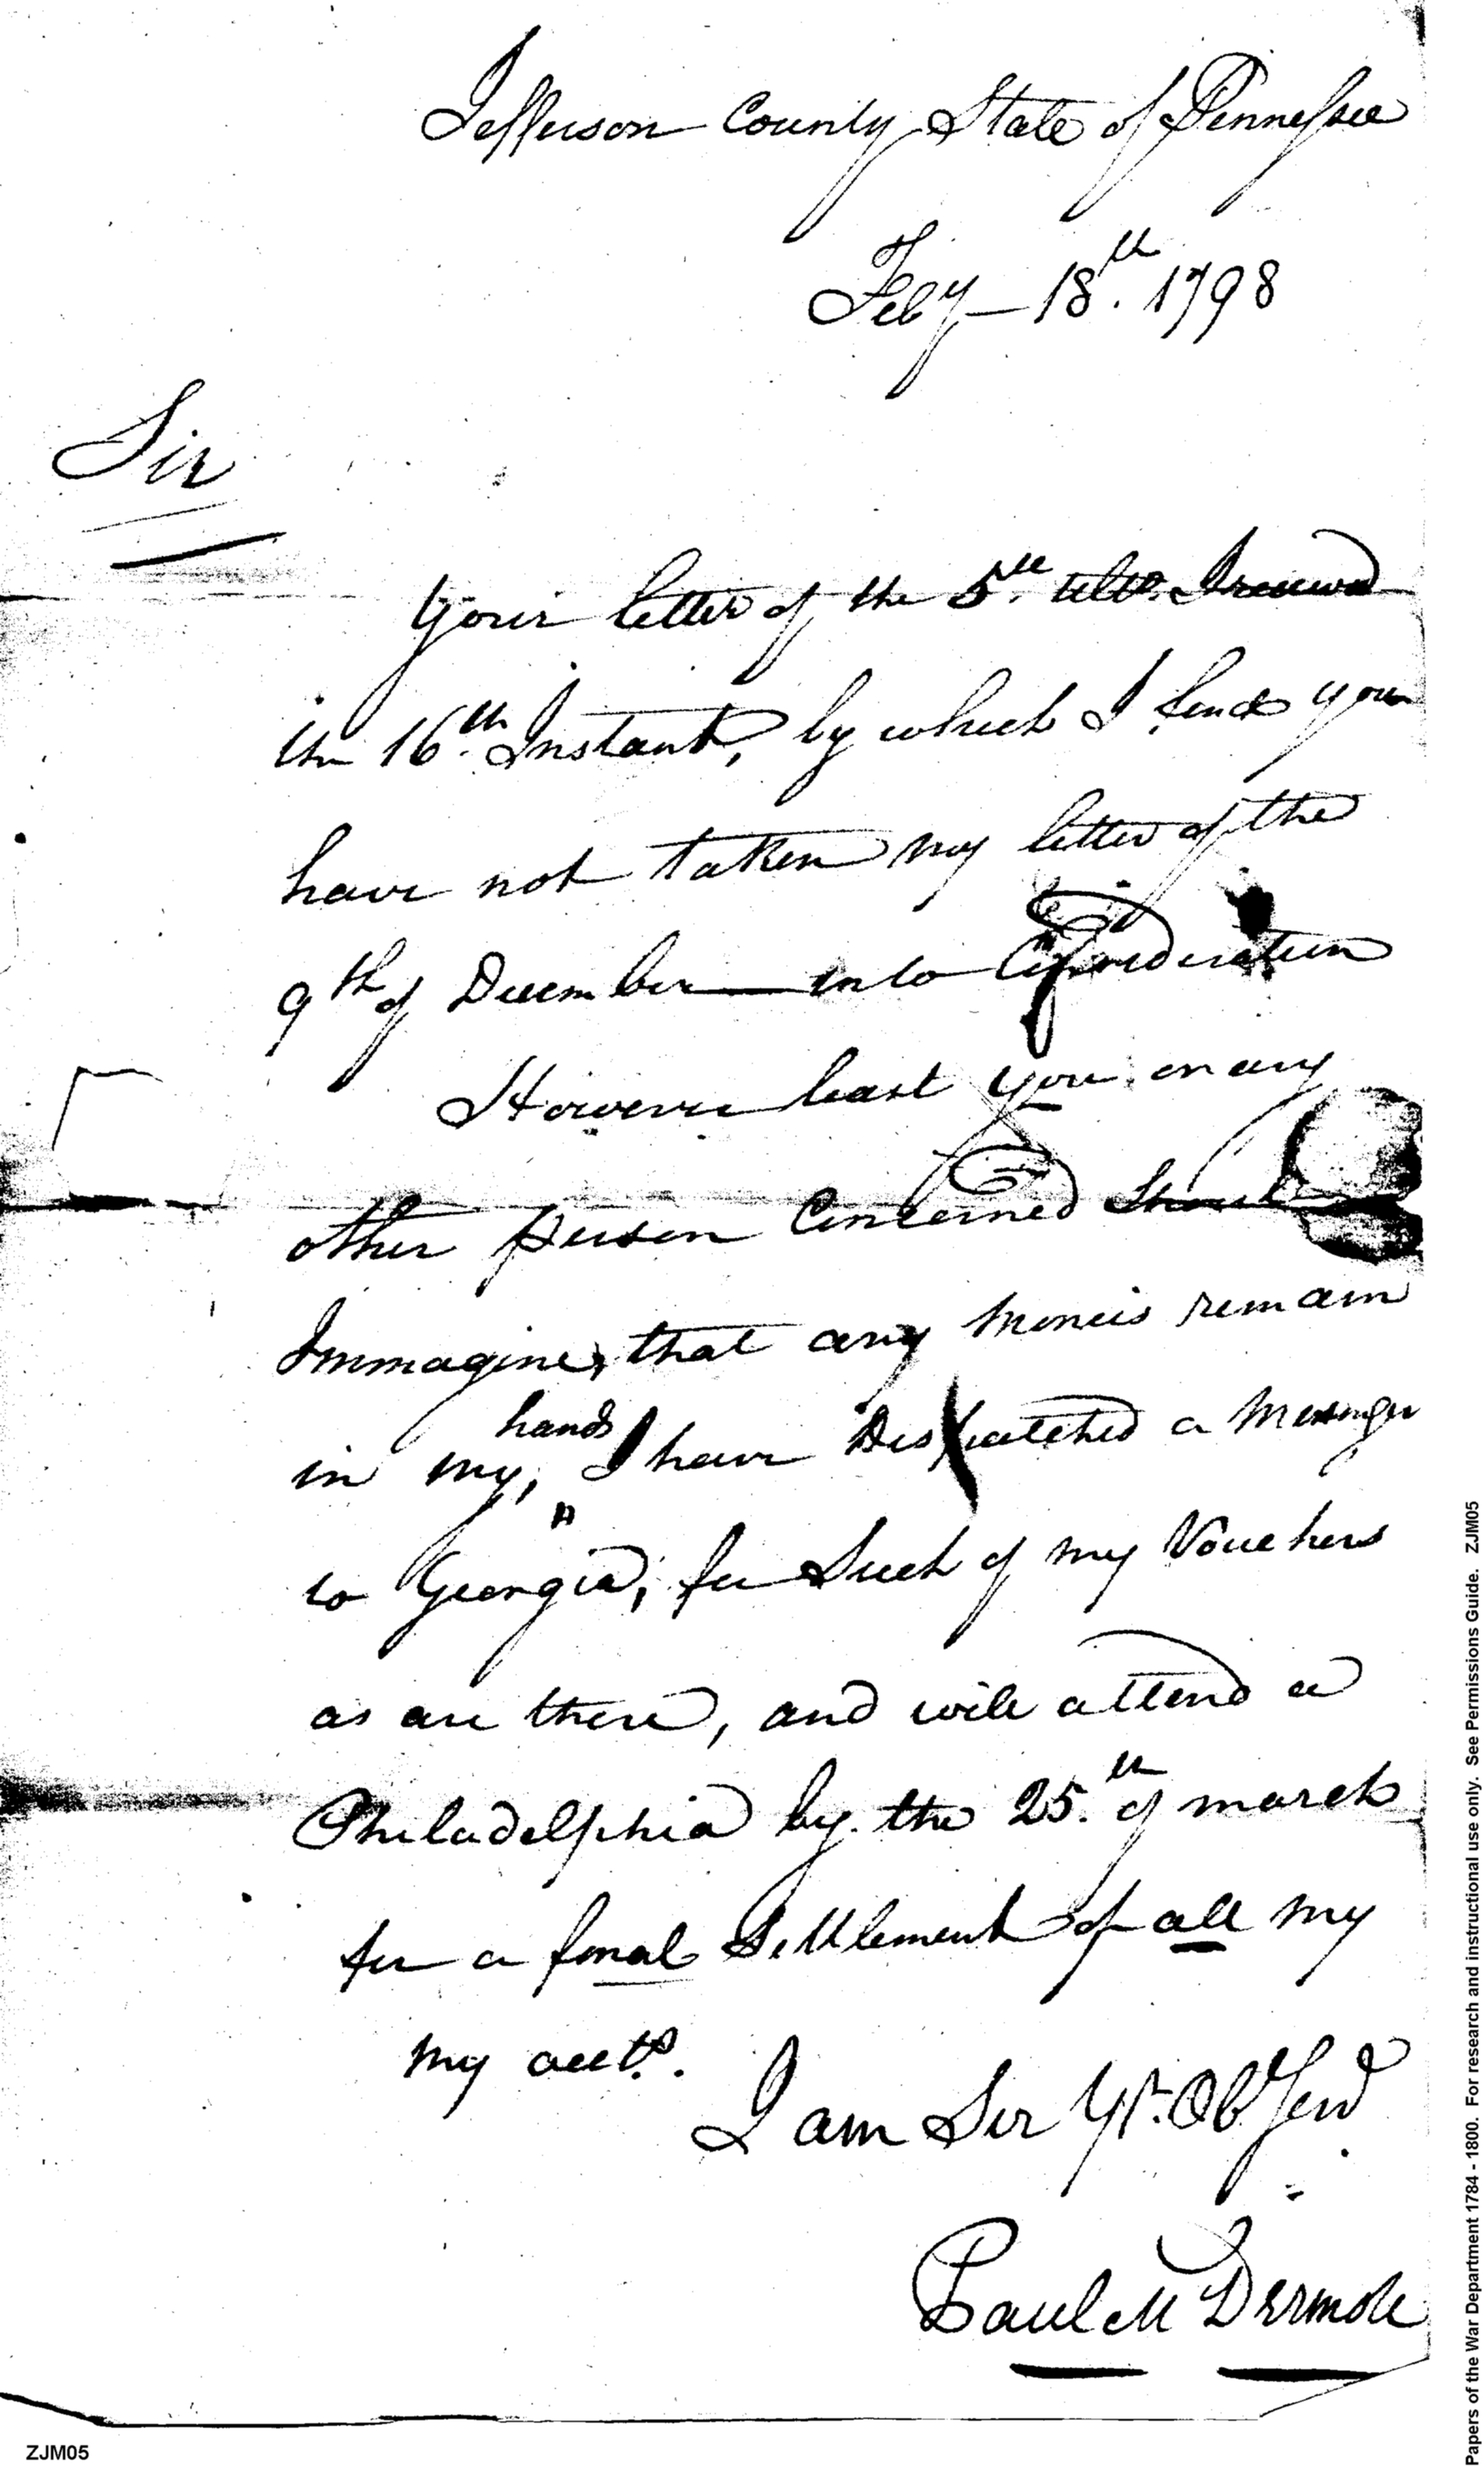 Jefferson County State of Tennessee
Feby 18th. 1798
Sir
Your letter of the 5th. ulto. I received
the 16th. Instant, by which I find you
have not taken my letter of the
9th of December into Consideration
However least you or any
other person Concerned Should
Immagine, that any monies remain
hands
in my, I have Dispatched a Messenger
to Georgia, for Such of my Vouchers
as are there, and will attend a
Philadelphia by the 25th. of march
for a final Settlement of all my
my accts.
I am Sir Yr. Obt Serv
Paul McDermott
ZJM05
Papers of the War Department 1784 - 1800. For research and instructional use only. See Permissions Guide. ZJM05